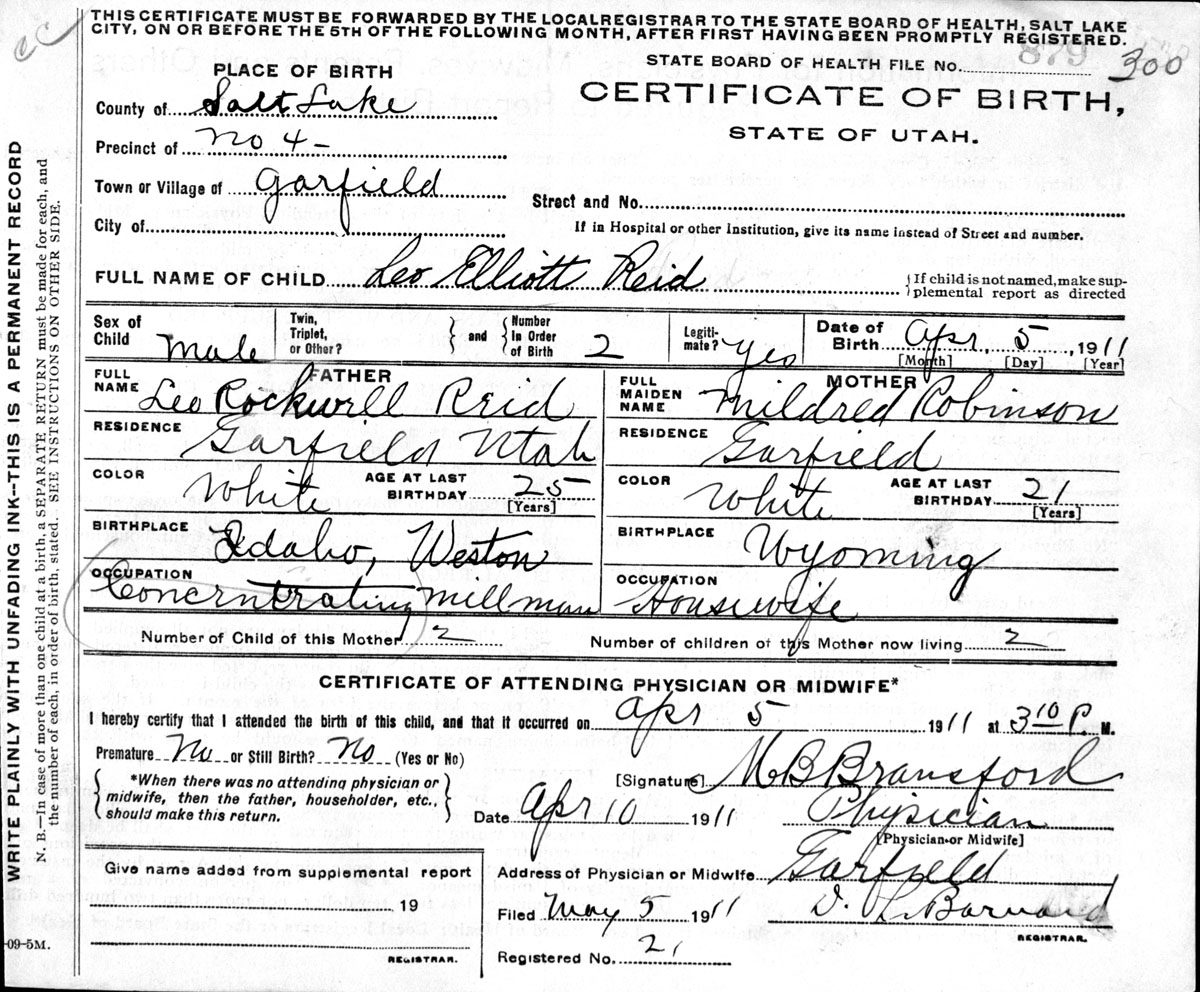 THIS CERTIFICATE MUST BE FORWARDED BY THE LOCALREGISTRAR TO THE STATE BOARD OF HEALTH, SALT LAKE
CITY, ON OR BEFORE THE 5TH OF THE FOLLOWING MONTH, AFTER FIRST HAVING BEEN PROMPTLY REGISTERED.
STATE BOARD OF HEALTH FILE NO. 879 300
PLACE OF BIRTH
CERTIFICATE OF BIRTH,
STATE OF UTAH.
County of Salt Lake
Precinct of No 4-
Town or Village of Garfield
Street and No.
City of
If in Hospital or other Institution, give its name instead of Street and number.
FULL NAME OF CHILD Leo Elliott Reid
{If child is not named, make sup-
plemental report as directed
Sex of Child Male
Twin, Triplet, or Other? } and { Number in Order of Birth 2
Legiti-mate? yes
Date of Birth Apr 5, 1911
[Month] [Day] [Year]
FATHER
FULL NAME Leo Rockwell Reid
RESIDENCE Garfield Utah
COLOR White AGE AT LAST BIRTHDAY 25
[Years]
BIRTHPLACE Idaho, Weston
OCCUPATION Concerntrating Millman
MOTHER
FULL MAIDEN NAME Mildred Robinson
RESIDENCE Garfield
COLOR White AGE AT LAST BIRTHDAY 21
[Years]
BIRTHPLACE Wyoming
OCCUPATION Housewife
Number of Child of this Mother 2 Number of children of this Mother now living 2
CERTIFICATE OF ATTENDING PHYSICIAN OR MIDWIFE*
I hereby certify that I attended the birth of this child, and that it occurred on Apr 5 1911 at 3 10 P. M.
Premature No or Still Birth? No (Yes or No)
*When there was no attending physician or
midwife, then the father, householder, etc.,
should make this return.
[Signature] M B Bransford
Date Apr 10 1911 Physician
[Physician or Midwife]
Address of Physician or Midwife Garfield
Filed May 5 1911 D. L. Barnard
REGISTRAR.
Registered No. 21
Give name added from supplemental report
19
REGISTRAR.
-09-5M.
WRITE PLAINLY WITH UNFADING INK--THIS IS A PERMANENT RECORD
N. B.—In case of more than one child at a birth, a SEPARATE RETURN must be made for each, and
the number of each, in order of birth, stated. SEE INSTRUCTIONS ON OTHER SIDE.